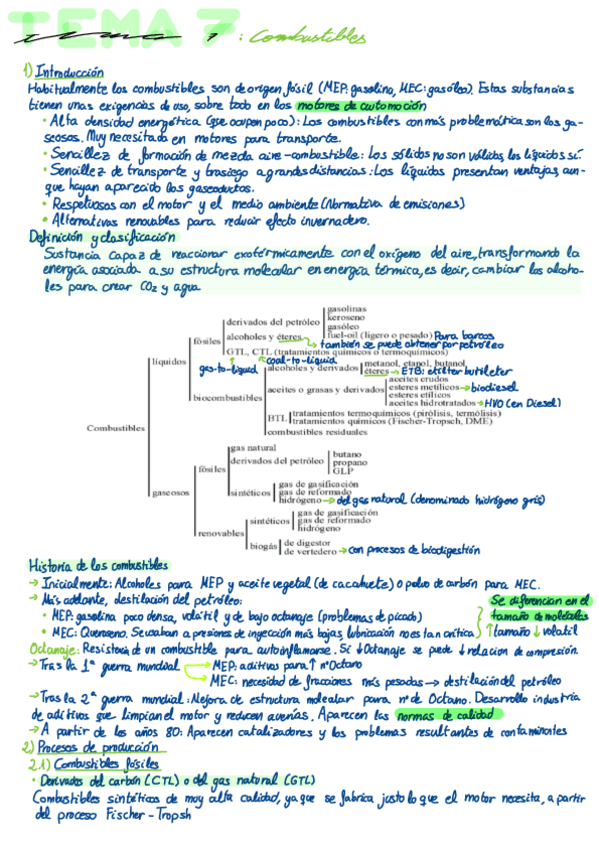 TEMA 7
Tema 7 : Combustibles
1) Introducción
Habitualmente los combustibles son de origen fósil (MEP: gasolina, MEC: gasóleo). Estas substancias
tienen unas exigencias de uso, sobre todo en los motores de automoción
• Alta densidad energética (que ocupen poco): Los combustibles con más problemática son los ga-
seosos. Muy necesitada en motores para transporte.
• Sencillez de formación de mezcla aire-combustible: Los sólidos no son válidos, los líquidos sí.
• Sencillez de transporte y trasiego a grandes distancias: Los líquidos presentan ventajas, aun-
que hayan aparecido los gaseoductos.
• Respetuosos con el motor y el medio ambiente (Normativa de emisiones)
• Alternativas renovables para reducir efecto invernadero.
Definición y clasificación
Sustancia capaz de reaccionar exotérmicamente con el oxígeno del aire, transformando la
energía asociada a su estructura molecular en energía térmica, es decir, cambiar los alcoho-
les para crear CO2 y agua
Combustibles
líquidos
fósiles
derivados del petróleo
gasolinas
keroseno
gasóleo
fuel-oil (ligero o pesado) Para barcos
alcoholes y éteres → también se puede obtener por petróleo
GTL, CTL (tratamientos químicos o termoquímicos)
gas-to-liquid
coal-to-liquid
biocombustibles
alcoholes y derivados
metanol, etanol, butanol
éteres → ETB: etilter butileter
aceites o grasas y derivados
aceites crudos
esteres metílicos → biodiesel
esteres etílicos
aceites hidrotratados → HVO (en Diesel)
BTL
tratamientos termoquímicos (pirólisis, termólisis)
tratamientos químicos (Fischer-Tropsch, DME)
combustibles residuales
gaseosos
fósiles
gas natural
derivados del petróleo
butano
propano
GLP
sintéticos
gas de gasificación
gas de reformado
hidrógeno → del gas natural (denominado hidrógeno gris)
renovables
sintéticos
gas de gasificación
gas de reformado
hidrógeno
biogás
de digestor
de vertedero → con procesos de biodigestión
Historia de los combustibles
→ Inicialmente: Alcoholes para MEP y aceite vegetal (de cacahuete) o polvo de carbón para MEC.
→ Más adelante, destilación del petróleo:
• MEP: gasolina poco densa, volátil y de bajo octanaje (problemas de picado)
• MEC: Queroseno. Se usaban a presiones de inyección más bajas, lubricación no es tan crítica
Se diferencian en el
tamaño de moléculas
↑ tamaño ↓ volatil
Octanaje: Resistencia de un combustible para autoinflamarse. Si ↓ Octanaje se puede ↓ relacion de compresión.
→ Tras la 1ª guerra mundial → MEP: aditivos para ↑ nº Octano
→ MEC: necesidad de fracciones más pesadas → destilación del petróleo
→ Tras la 2ª guerra mundial: Mejora de estructura molecular para nº de Octano. Desarrollo industria
de aditivos que limpian el motor y reducen averías. Aparecen las normas de calidad
→ A partir de los años 80: Aparecen catalizadores y los problemas resultantes de contaminantes
2) Procesos de producción
2.1) Combustibles fósiles
• Derivados del carbón (CTL) o del gas natural (GTL)
Combustibles sintéticos de muy alta calidad, ya que se fabrica justo lo que el motor necesita, a partir
del proceso Fischer-Tropsh